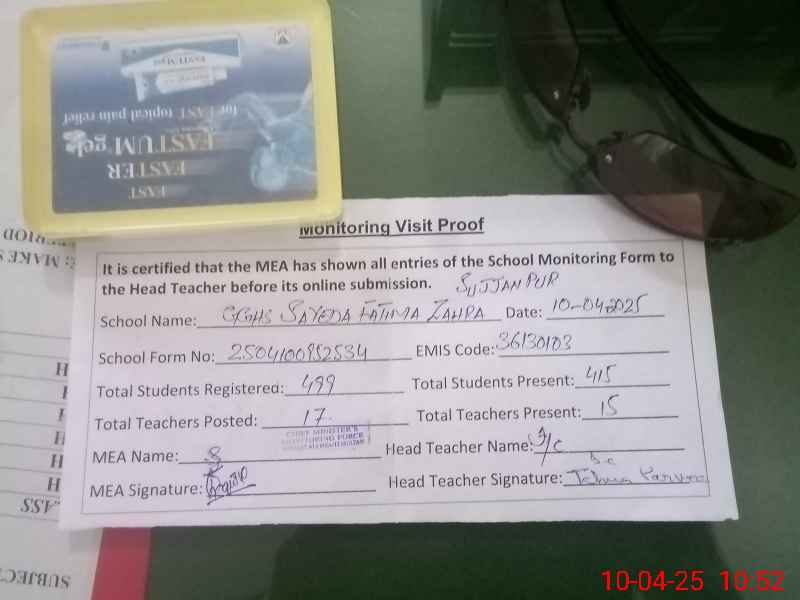 FAST
EASTER
EASTUM gel
for FAST topical pain relief
Monitoring Visit Proof
It is certified that the MEA has shown all entries of the School Monitoring Form to
the Head Teacher before its online submission. SUJJANPUR
School Name: GGHS SAYEDA FATIMA ZAHRA Date: 10-04-2025
School Form No: EMIS Code: 36130103
Total Students Registered: 499 Total Students Present: 415
Total Teachers Posted: 17 Total Teachers Present: 15
CHIEF MINISTER'S
MONITORING FORCE
MEA Name: Head Teacher Name: I/c
MEA Signature: Head Teacher Signature:
PERIOD
: MAKE S
H
H
H
H
H
ASS
SUBJECT
10-04-25 10:52